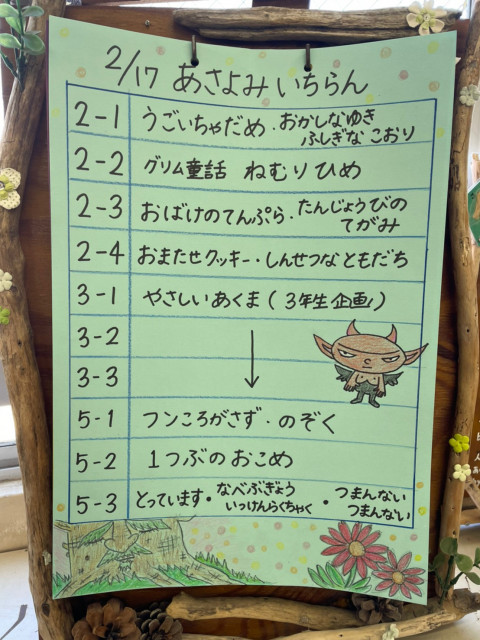 2/17 あさよみ いちらん
2-1 うごいちゃだめ・おかしなゆき
ふしぎな こおり
2-2 グリム童話 ねむりひめ
2-3 おばけのてんぷら・たんじょうびの
てがみ
2-4 おまたせクッキー・しんせつなともだち
3-1 やさしいあくま(3年生企画!)
3-2
3-3
5-1 フンころがさず・のぞく
5-2 1つぶのおこめ
5-3 とっています・なべぶぎょう
いっけんらくちゃく・つまんない
つまんない